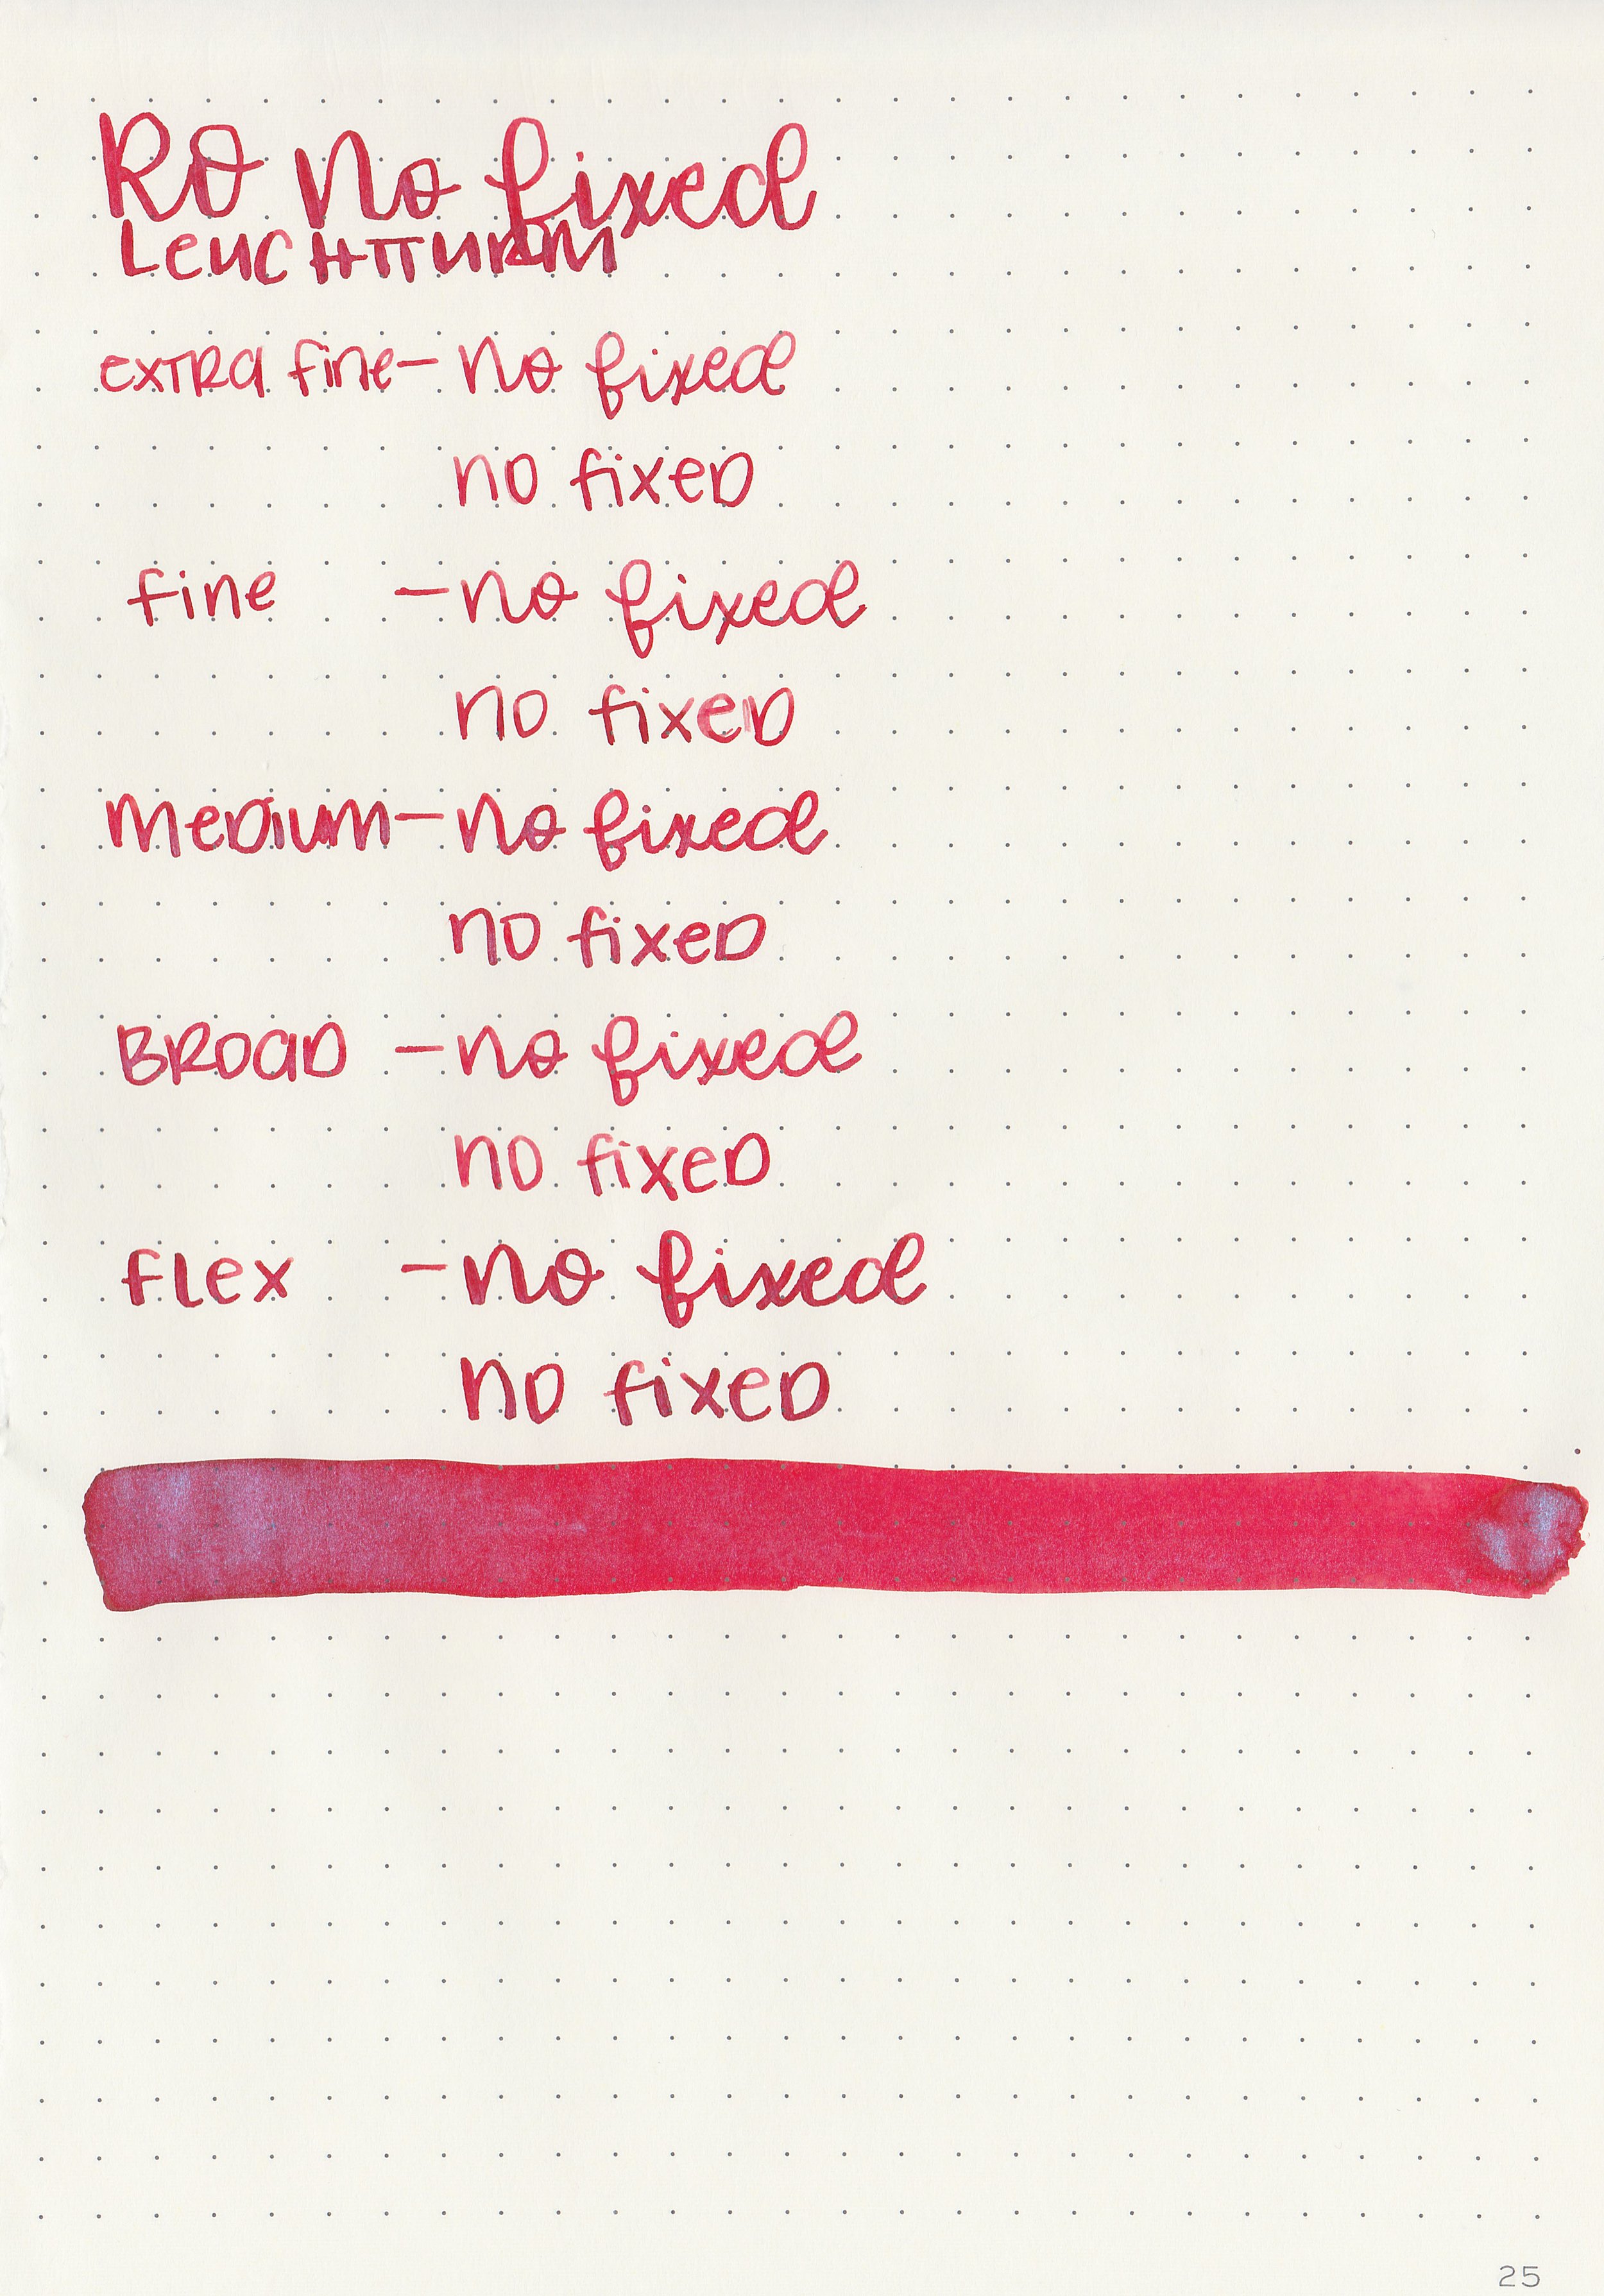 RO No fixed
LEUCHTTURM
EXTRA fine - No fixed
no fixed
fine - No fixed
no fixed
MeDIUM - No fixed
no fixed
BROaD - No fixed
no fixed
fLex - No fixed
no fixed
25